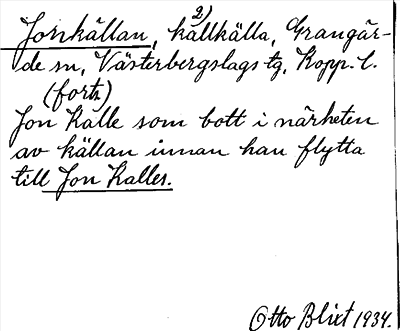 2)
Jonkällan, kallkälla, Grangär-
de sn, Västerbergslags tg, Kopp. l.
(forts)
Jon Kalle som bott i närheten
av källan innan han flytta
till Jon Kalles.
Otto Blixt 1934.